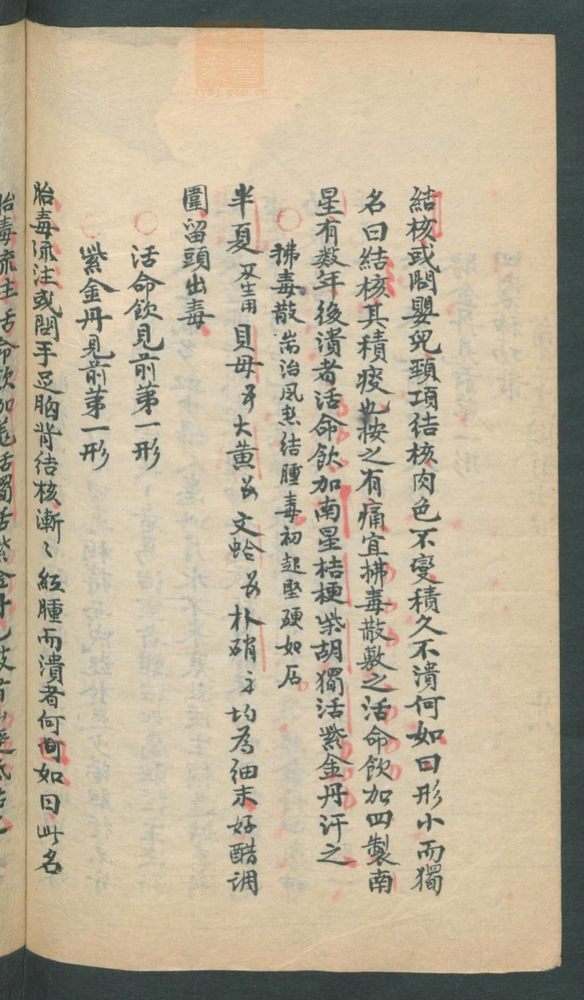 結核或問嬰兒頸項結核肉色不變積久不潰何如曰形小而獨
名曰結核其積痰也按之有痛宜拂毒散敷之活命飲加四製南
星有数年後潰者活命飲加南星桔梗柴胡獨活紫金丹汗之
拂毒散耑治風热結腫毒初起堅硬如石
半夏 貝母 大黃 文蛤 朴硝 均為細末好醋調
圍留頭出毒
活命飲見前第一形
紫金丹見前第一形
胎毒流注或問手足胸背結核漸〻紅腫而潰者何如曰此名
胎毒流注活命飲加羗活獨活紫金丹